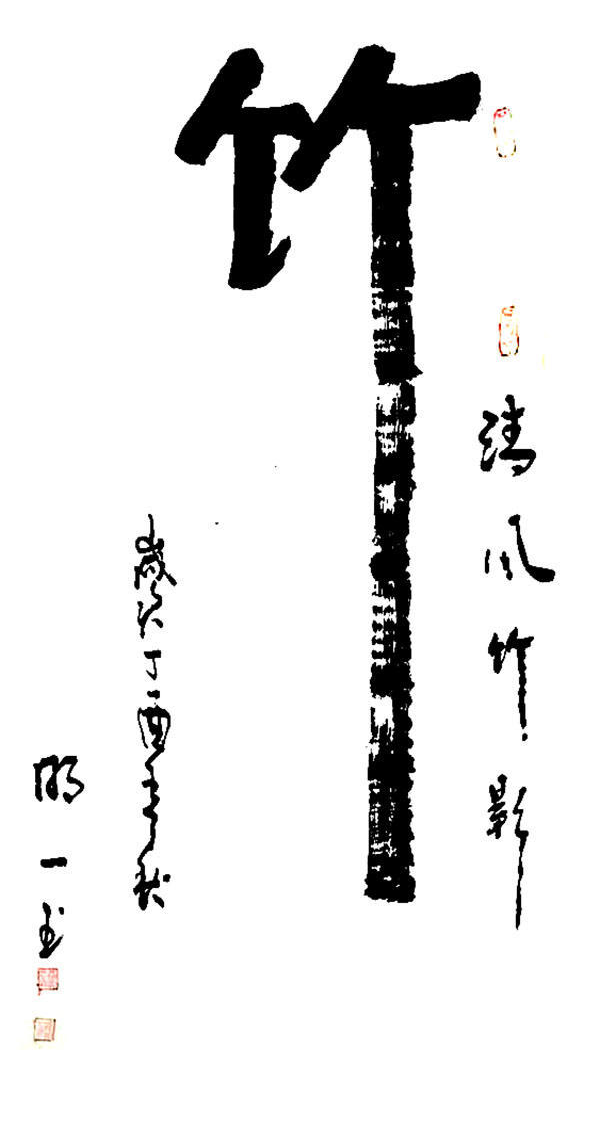 清风竹影
竹
歲次丁酉秋
明一书